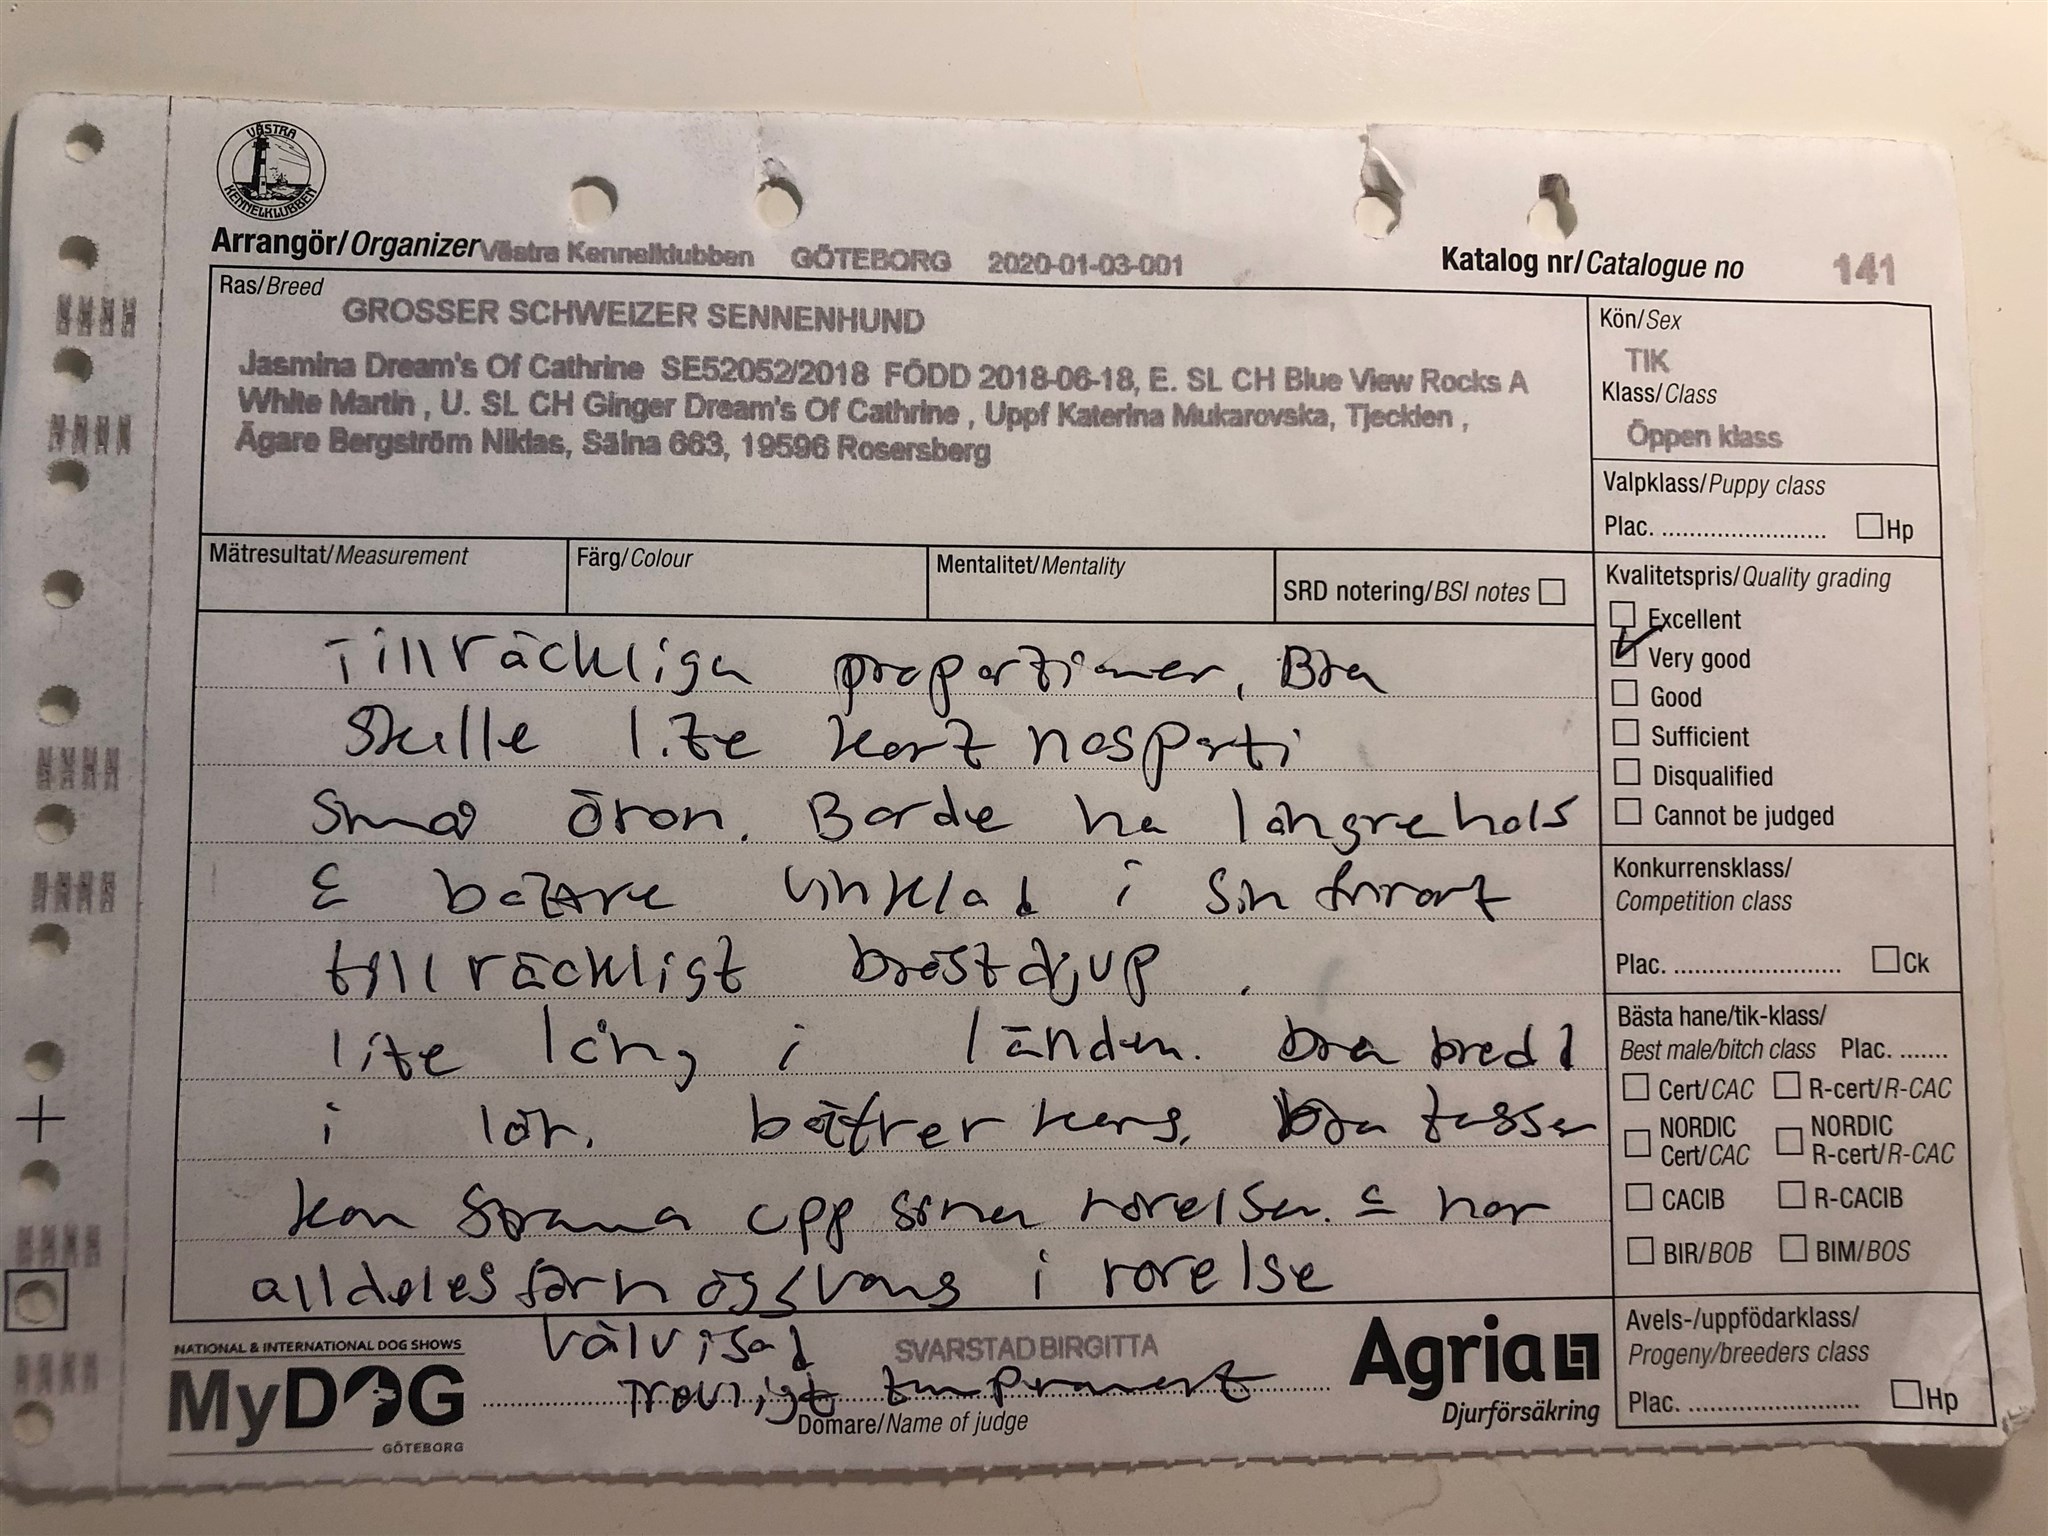 VÄSTRA
KENNELKLUBBEN
Arrangör/Organizer Västra Kennelklubben GÖTEBORG 2020-01-03-001
Katalog nr/Catalogue no 141
Ras/Breed
GROSSER SCHWEIZER SENNENHUND
Jasmina Dream's Of Cathrine SE52052/2018 FÖDD 2018-06-18, E. SL CH Blue View Rocks A
White Martin , U. SL CH Ginger Dream's Of Cathrine , Uppf Katerina Mukarovska, Tjeckien ,
Ägare Bergström Niklas, Sälna 663, 19596 Rosersberg
Kön/Sex
TIK
Klass/Class
Öppen klass
Valpklass/Puppy class
Plac. .......................... Hp
Mätresultat/Measurement
Färg/Colour
Mentalitet/Mentality
SRD notering/BSI notes
Kvalitetspris/Quality grading
Excellent
Very good
Good
Sufficient
Disqualified
Cannot be judged
Tillräckliga proportioner, Bra
Skalle lite kort nosparti
Små öron. Borde ha längre hals
& bättre vinklad i sin front
tillräckligt bröstdjup.
lite lång i länden. bra bredd
i lår. bättre hans. bra tassar
kan strama upp sina rörelser. & har
alldeles för hög svans i rörelse
Välvisad
Trevligt temperament
Konkurrensklass/
Competition class
Plac. .......................... Ck
Bästa hane/tik-klass/
Best male/bitch class Plac. .......
Cert/CAC R-cert/R-CAC
NORDIC NORDIC
Cert/CAC R-cert/R-CAC
CACIB R-CACIB
BIR/BOB BIM/BOS
Avels-/uppfödarklass/
Progeny/breeders class
Plac. .......................... Hp
NATIONAL & INTERNATIONAL DOG SHOWS
MyDOG
GÖTEBORG
SVARSTAD BIRGITTA
Domare/Name of judge
Agria
Djurförsäkring